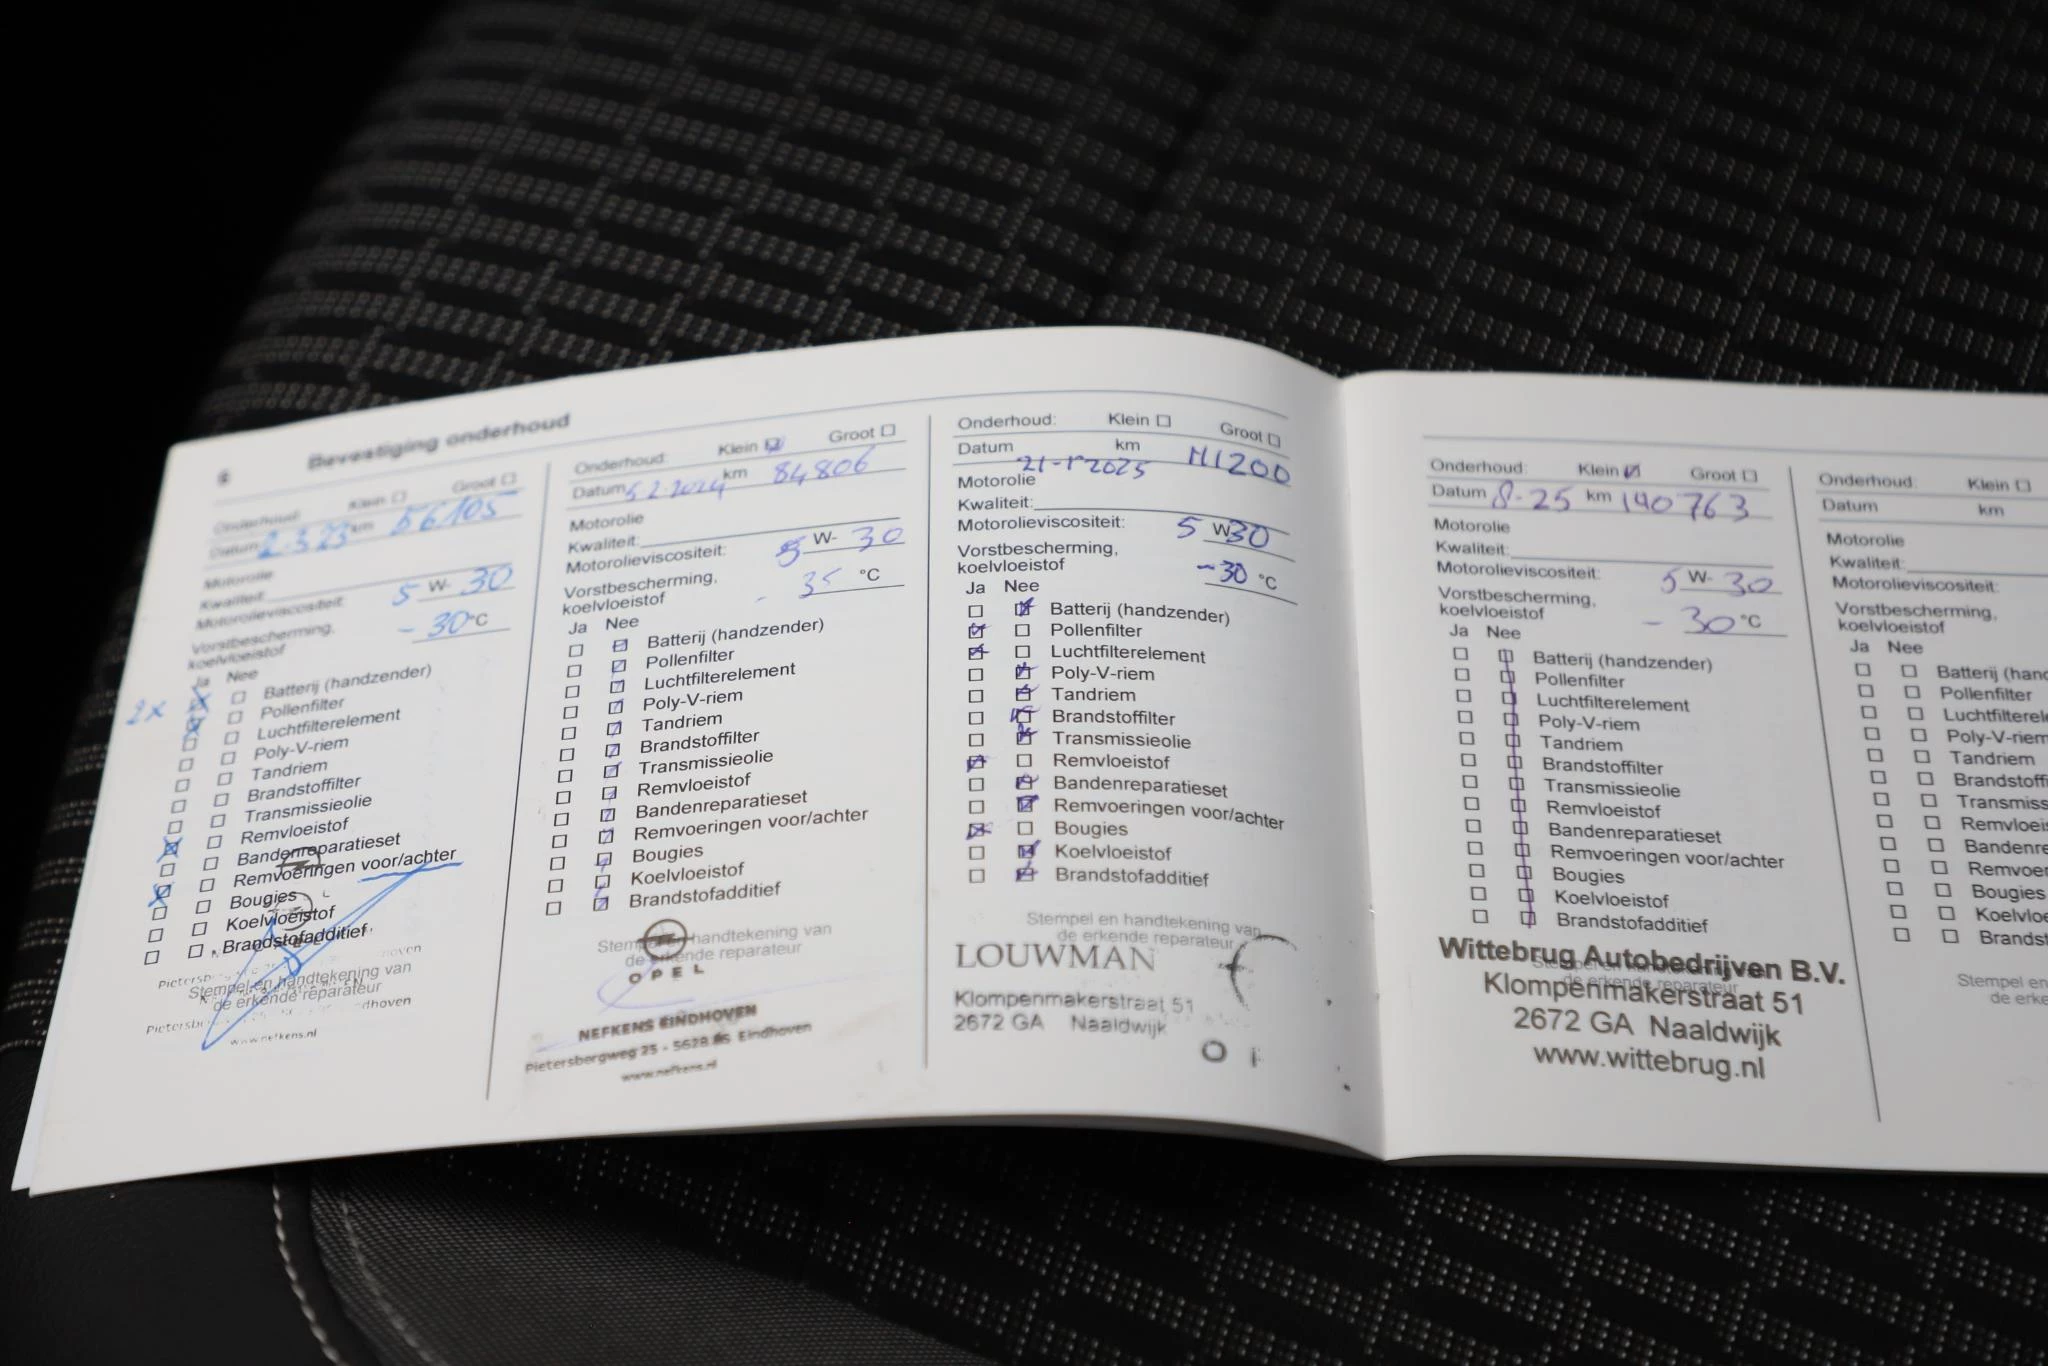 6 Bevestiging onderhoud
Onderhoud: Klein Groot
Datum 2-3-23 km 56105
Motorolie
Kwaliteit:
Motorolieviscositeit: 5 W- 30
Vorstbescherming,
koelvloeistof - 30 °C
Ja Nee
Batterij (handzender)
2x Pollenfilter
Luchtfilterelement
Poly-V-riem
Tandriem
Brandstoffilter
Transmissieolie
Remvloeistof
Bandenreparatieset
Remvoeringen voor/achter
Bougies
Koelvloeistof
Brandstofadditief
Stempel en handtekening van
de erkende reparateur
www.nefkens.nl
Onderhoud: Klein Groot
Datum 5-2-2024 km 84806
Motorolie
Kwaliteit:
Motorolieviscositeit: 5 W- 30
Vorstbescherming,
koelvloeistof - 35 °C
Ja Nee
Batterij (handzender)
Pollenfilter
Luchtfilterelement
Poly-V-riem
Tandriem
Brandstoffilter
Transmissieolie
Remvloeistof
Bandenreparatieset
Remvoeringen voor/achter
Bougies
Koelvloeistof
Brandstofadditief
Stempel en handtekening van
de erkende reparateur
OPEL
NEFKENS EINDHOVEN
Pietersbergweg 25 - 5628 Eindhoven
www.nefkens.nl
Onderhoud: Klein Groot
Datum 21-1-2025 km 111200
Motorolie
Kwaliteit:
Motorolieviscositeit: 5 W 30
Vorstbescherming,
koelvloeistof -30 °C
Ja Nee
Batterij (handzender)
Pollenfilter
Luchtfilterelement
Poly-V-riem
Tandriem
Brandstoffilter
Transmissieolie
Remvloeistof
Bandenreparatieset
Remvoeringen voor/achter
Bougies
Koelvloeistof
Brandstofadditief
Stempel en handtekening van
de erkende reparateur
LOUWMAN
Klompenmakerstraat 51
2672 GA Naaldwijk
Onderhoud: Klein Groot
Datum 8-25 km 140763
Motorolie
Kwaliteit:
Motorolieviscositeit: 5 W- 30
Vorstbescherming,
koelvloeistof - 30 °C
Ja Nee
Batterij (handzender)
Pollenfilter
Luchtfilterelement
Poly-V-riem
Tandriem
Brandstoffilter
Transmissieolie
Remvloeistof
Bandenreparatieset
Remvoeringen voor/achter
Bougies
Koelvloeistof
Brandstofadditief
Wittebrug Autobedrijven B.V.
Klompenmakerstraat 51
2672 GA Naaldwijk
www.wittebrug.nl
Onderhoud: Klein
Datum km
Motorolie
Kwaliteit:
Motorolieviscositeit:
Vorstbescherming,
koelvloeistof
Ja Nee
Batterij (hand
Pollenfilter
Luchtfilterele
Poly-V-riem
Tandriem
Brandstoff
Transmiss
Remvloeis
Bandenre
Remvoe
Bougies
Koelvloe
Brandst
Stempel en
de erke